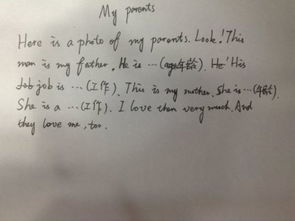 My parents
Here is a photo of my parents. Look! This
man is my father. He is ... (年龄). His
job is ... (工作). This is my mother. She is ... (年龄).
She is a ... (工作). I love them very much. And
they love me, too.